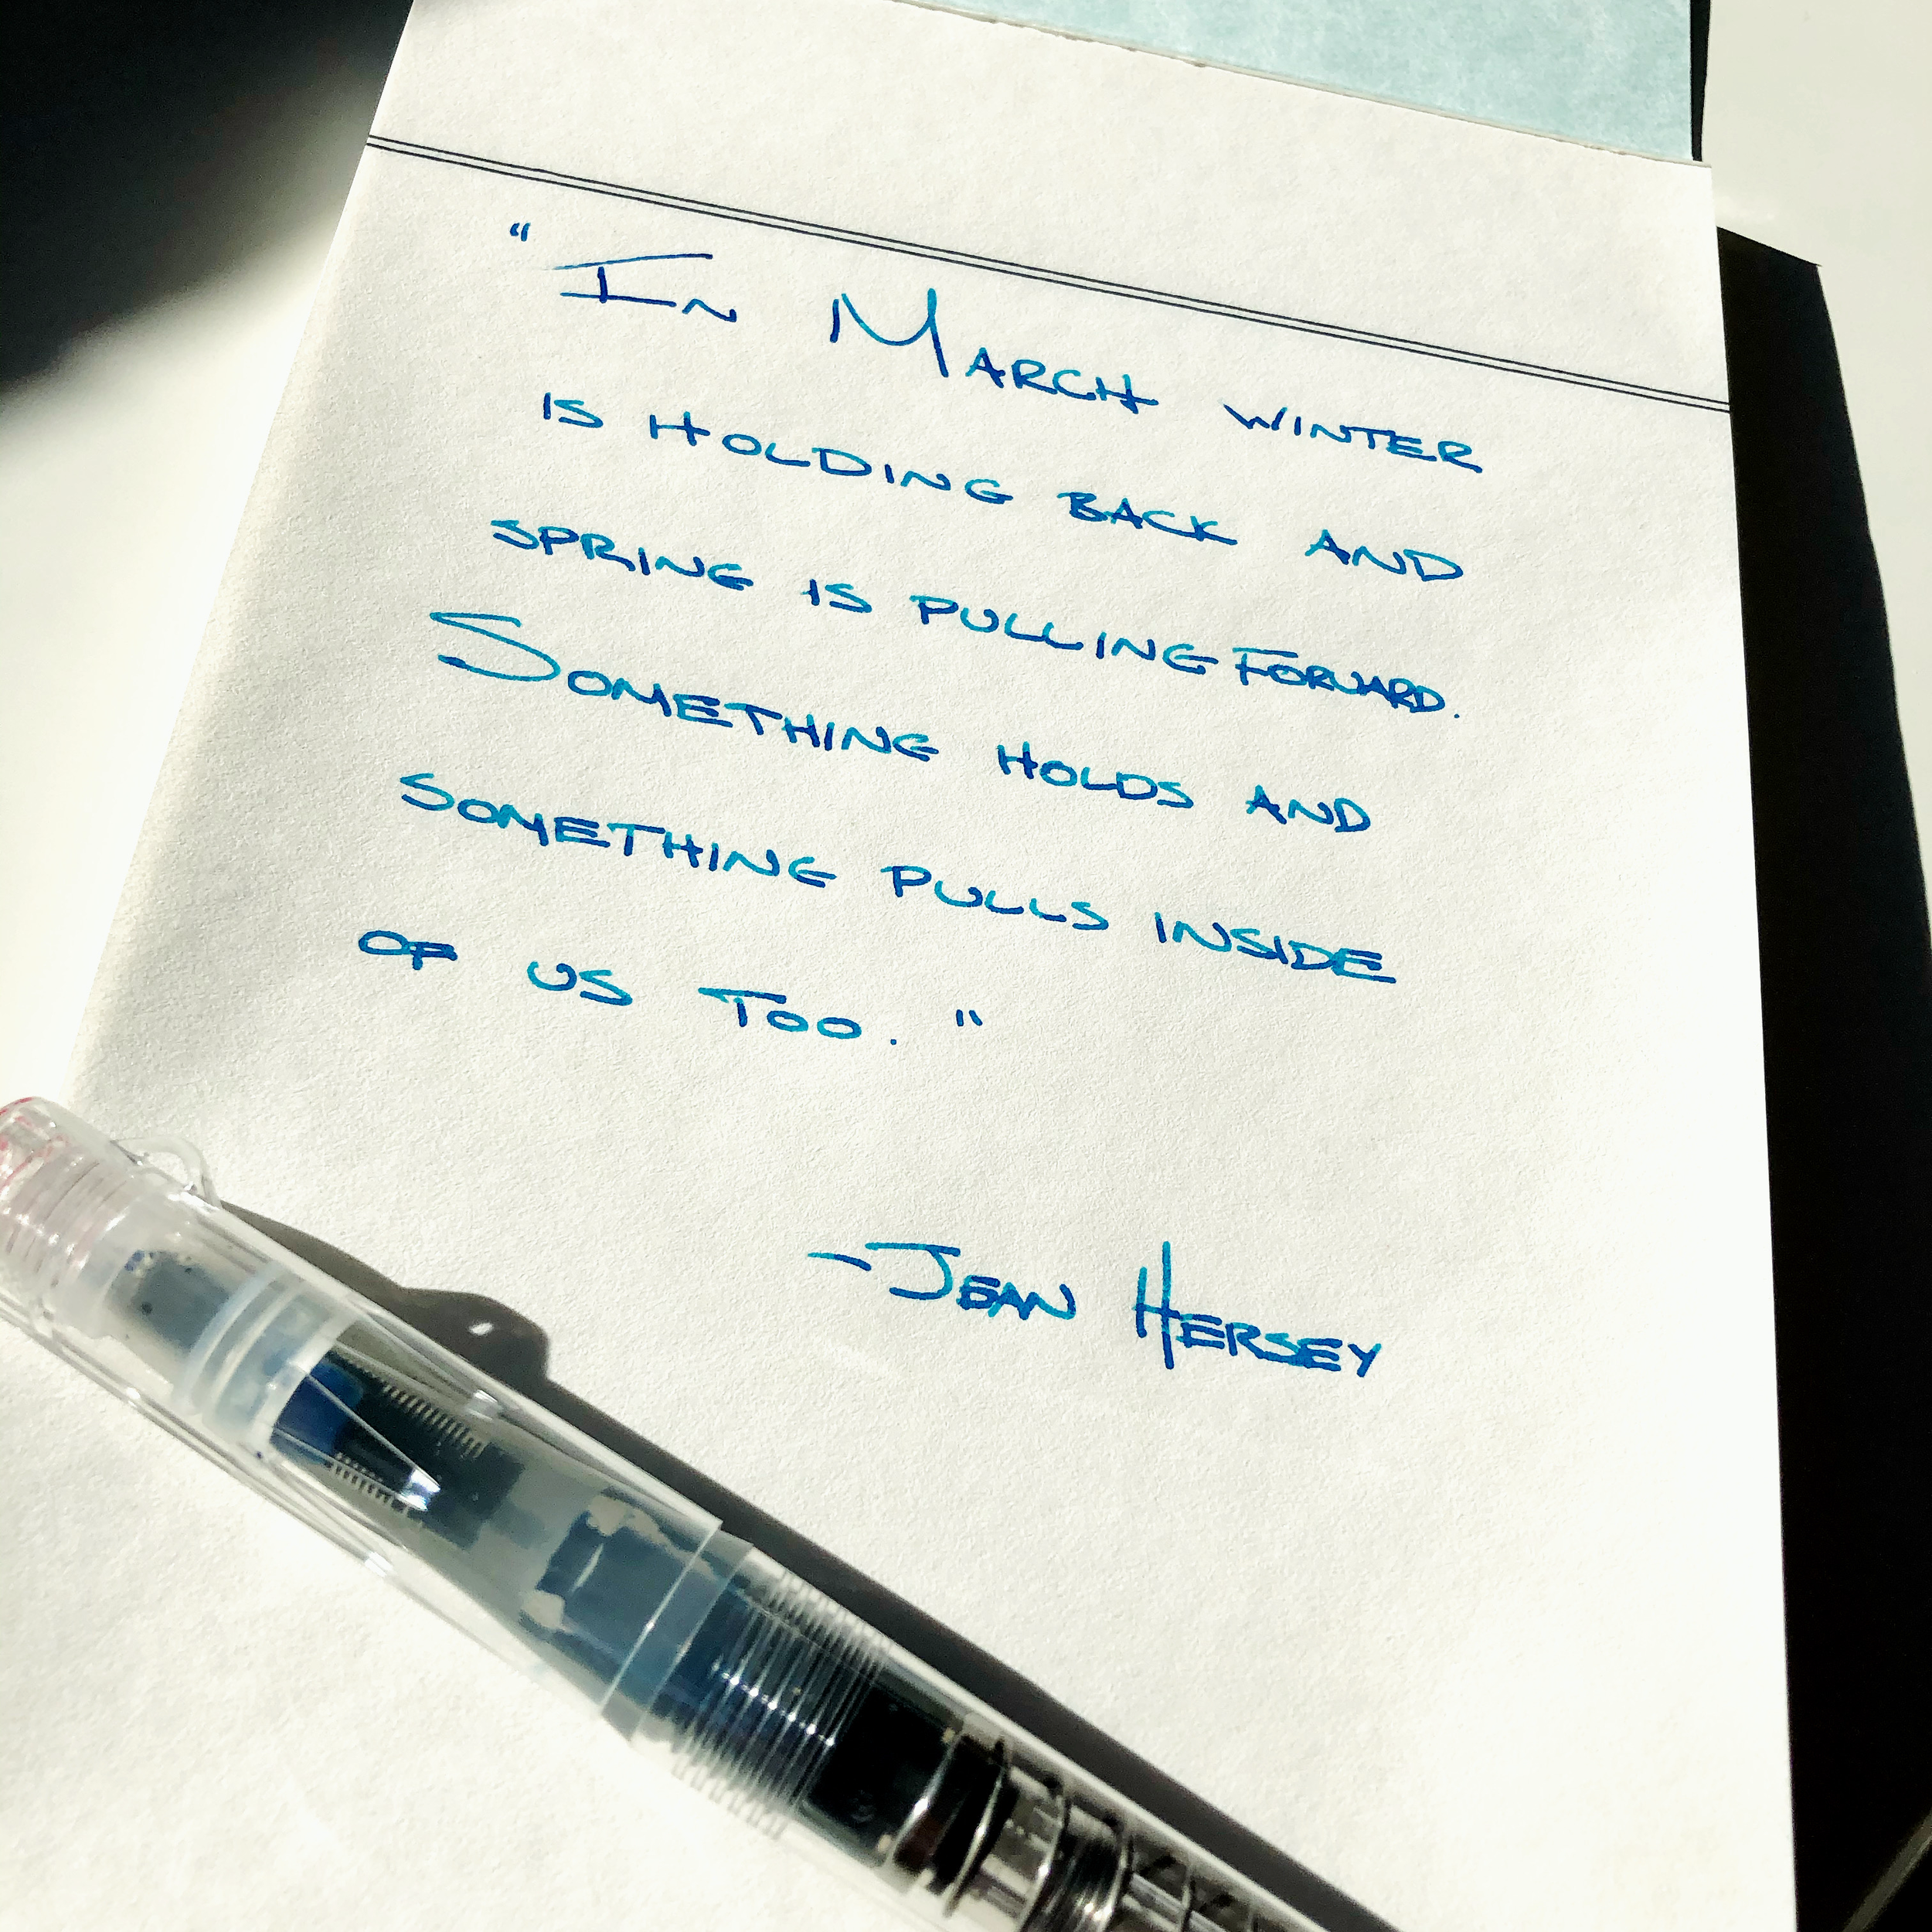 “In March winter
is holding back and
spring is pulling forward.
Something holds and
something pulls inside
of us too."
-Jean Hersey